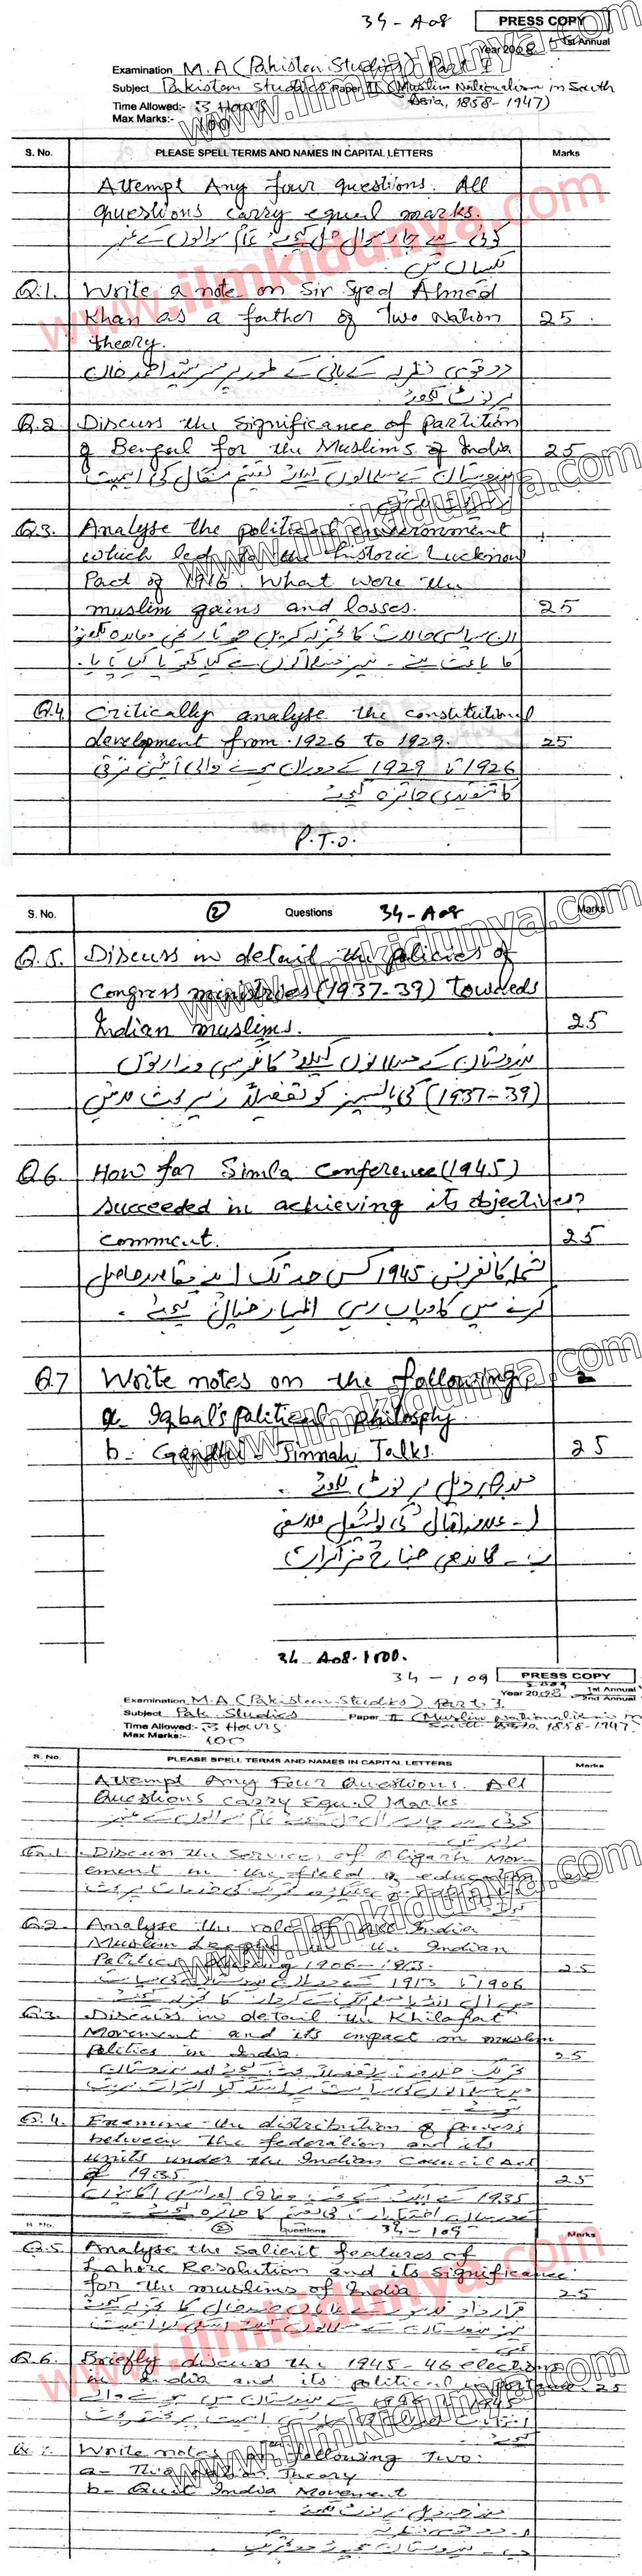 34-A08 PRESS COPY
Year 2008 1st Annual
Examination M.A (Pakistan Studies) Part I
Subject Pakistan Studies Paper II (Muslim Nationalism in South
Asia, 1858-1947)
Time Allowed:- 3 Hours
Max Marks:- 100
S. No. PLEASE SPELL TERMS AND NAMES IN CAPITAL LETTERS Marks
Attempt Any four questions. All
questions carry equal marks.
کوئی سے چار سوال حل کیجئے تمام سوالوں کے نمبر
یکساں ہیں
Q.1. Write a note on Sir Syed Ahmed
Khan as a father of Two Nation 25
theory.
دو قومی نظریہ کے بانی کے طور پر سرسید احمد خان
پر نوٹ لکھئے
Q.2 Discuss the significance of Partition
of Bengal for the Muslims of India 25
ہندوستان کے مسلمانوں کیلئے تقسیم بنگال کی اہمیت
Q.3. Analyse the political environment
which led to the historic Lucknow
Pact of 1916. What were the
muslim gains and losses. 25
ان سیاسی حالات کا تجزیہ کریں جو تاریخی معاہدہ لکھنؤ
کا باعث بنے ۔ نیز مسلمانوں نے کیا کھویا کیا پایا ۔
Q.4 Critically analyse the constitutional
development from 1926 to 1929. 25
1926 تا 1929 کے دوران ہونے والی آئینی ترقی
کا تنقیدی جائزہ لیجئے
P.T.O.
S. No. 2 Questions 34-A08 Marks
Q.5. Discuss in detail the policies of
Congress ministries (1937-39) towards
Indian muslims. 25
ہندوستان کے مسلمانوں کیلئے کانگرسی وزارتوں
(1937-39) کی پالیسیز کو تفصیلاً زیر بحث لائیں
Q.6. How far Simla Conference (1945)
succeeded in achieving its objectives?
comment. 25
شملہ کانفرنس 1945 کس حد تک اپنے مقاصد حاصل
کرنے میں کامیاب رہی اظہار خیال کیجئے ۔
Q.7 Write notes on the following
a- Iqbal's Political Philosphy
b- Gandhi - Jinnah Talks. 25
مندرجہ ذیل پر نوٹ لکھئے ۔
ا ۔ علامہ اقبال کی پولیٹیکل فلاسفی
ب ۔ گاندھی جناح مذاکرات
34-A08-1500.
34-109 PRESS COPY
Examination M.A (Pakistan Studies) Part I
Subject Pak. Studies Paper II (Muslim Nationalism in
South Asia 1858-1947)
Time Allowed:- 3 Hours
Max Marks:- 100
S. No. PLEASE SPELL TERMS AND NAMES IN CAPITAL LETTERS Marks
Attempt Any Four Questions. All
Questions carry Equal Marks.
کوئی سے چار سوال حل کیجئے تمام سوالوں کے نمبر
برابر ہیں
Q.1. Discuss the services of Aligarh Mov-
ement in the field of education 25
Q.2. Analyse the role of All India
Muslim League in the Indian
Politics during 1906-1913. 25
1906 تا 1913 کے دوران
Q.3. Discuss in detail the Khilafat
Movement and its impact on muslim
politics in India. 25
Q.4. Examine the distribution of powers
between the federation and its
units under the Indian Council Act
of 1935 25
1935 کے ایکٹ کے تحت وفاق اور اسکی اکائیوں
S. No. 2 Questions 34-109 Marks
Q.5 Analyse the salient features of
Lahore Resolution and its significance
for the muslims of India 25
Q.6. Briefly discuss the 1945-46 elections
in India and its political importance 25
Q.7. Write notes on following Two:
a- Two Nation Theory
b- Quit India Movement
مندرجہ ذیل پر نوٹ لکھئے
ا ۔ دو قومی نظریہ
ب ۔ ہندوستان چھوڑ دو تحریک
www.ilmkidunya.com